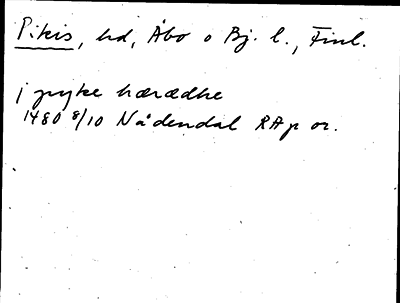 Pikis, hd, Åbo o Bj. l., Finl.
j pyke hæradhe
1480 8/10 Nådendal RAp or.